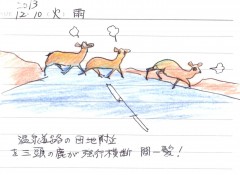 2013
12.10 火 雨
温泉道路の団地附近
を三頭の鹿が強行横断 間一髪!